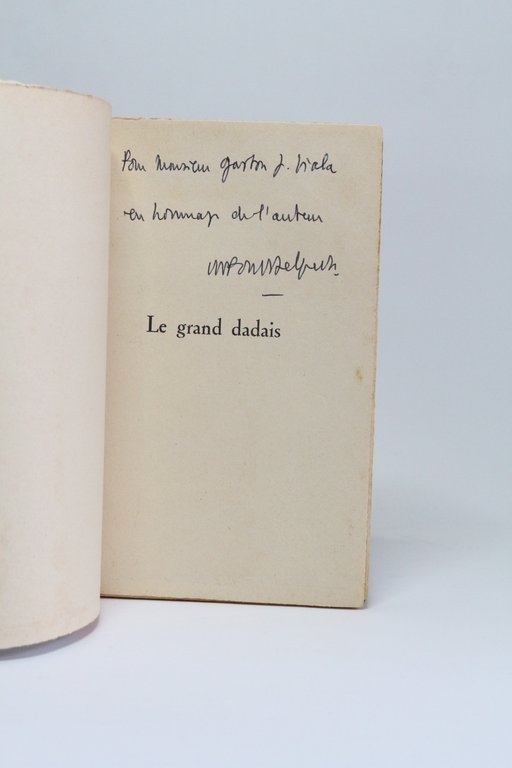 Pour Monsieur Gaston J. Viala
en hommage de l'auteur
Le grand dadais